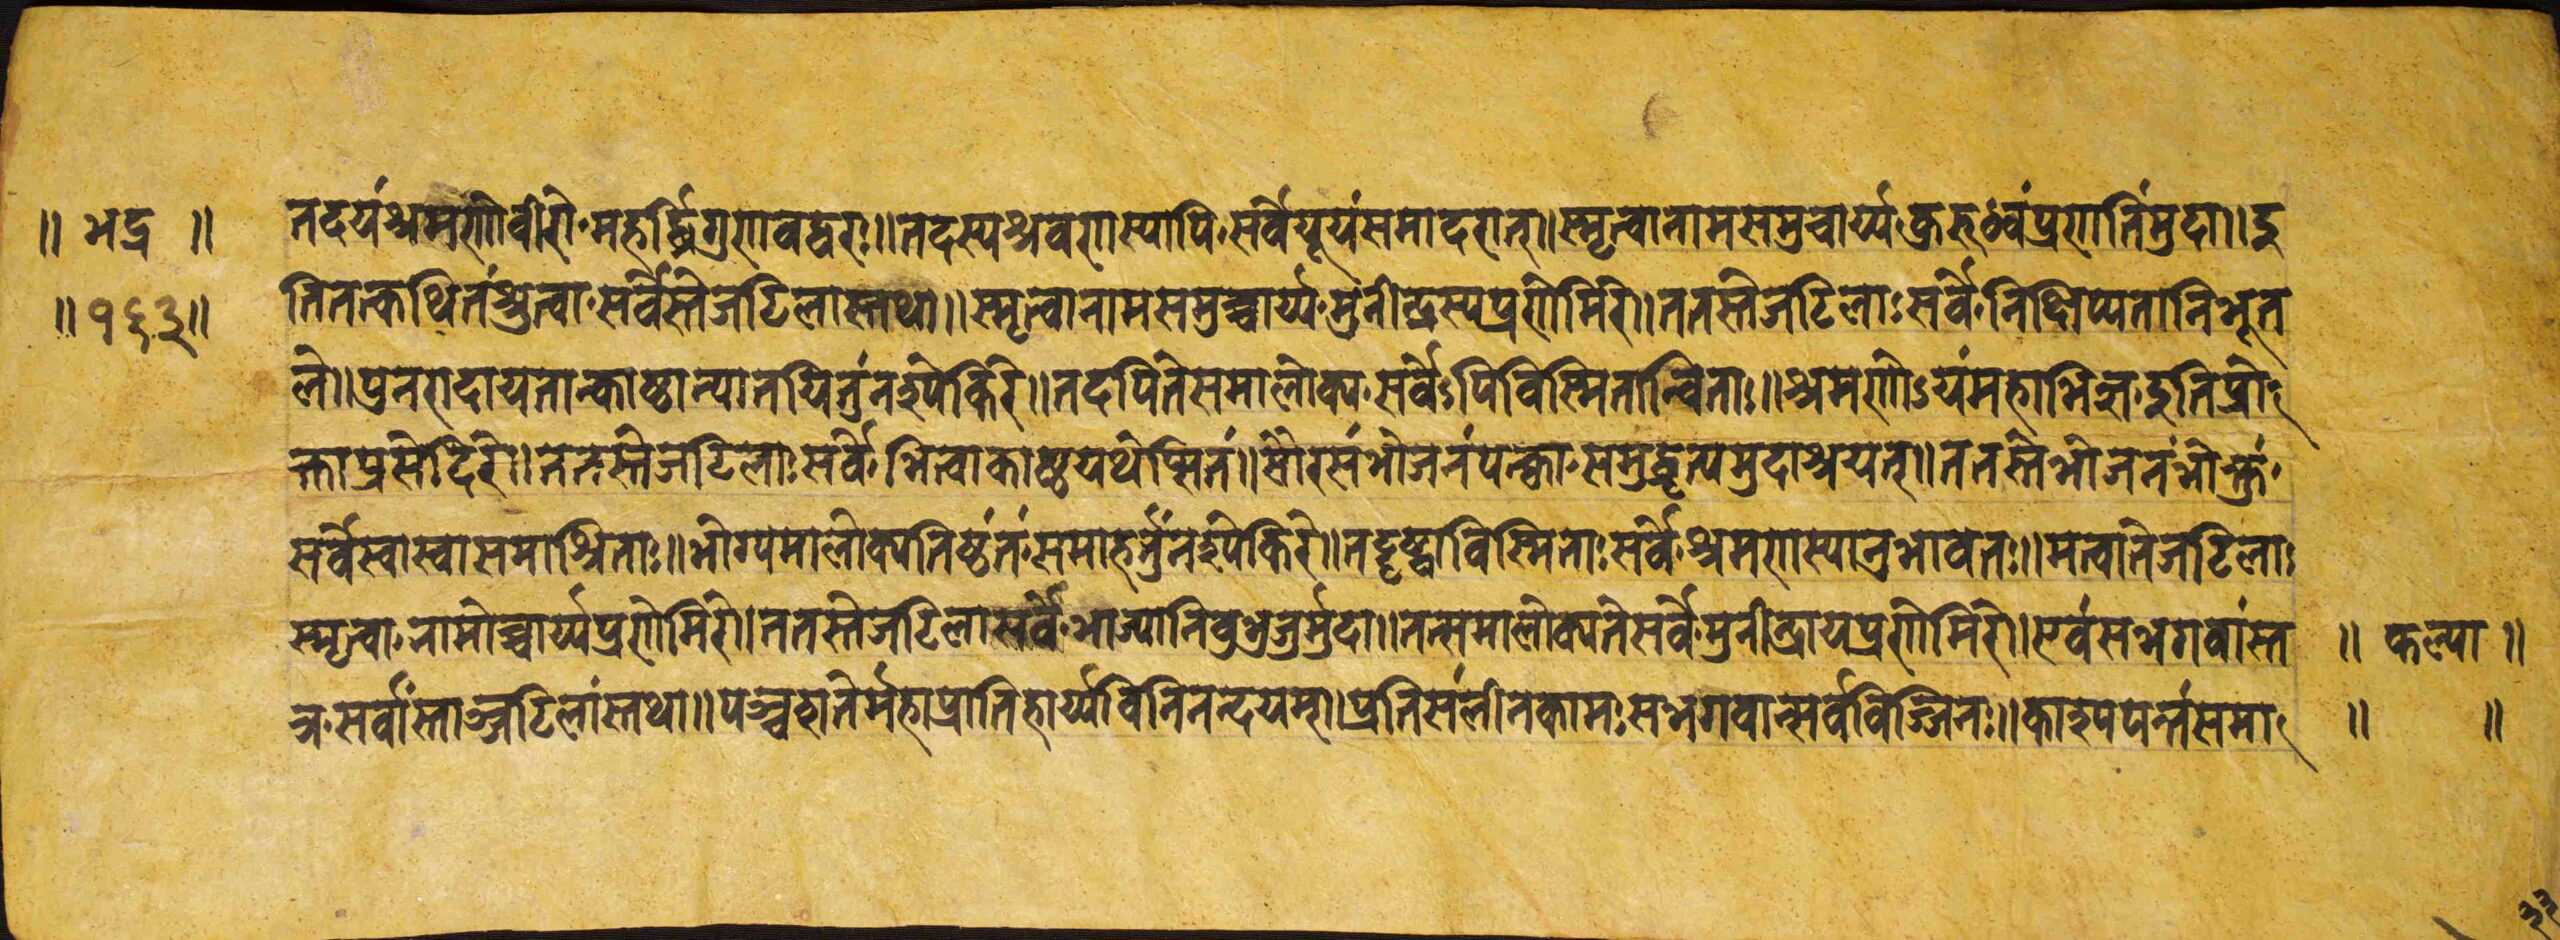 ॥ भद्र ॥ तदयंश्रमणोवीरो॰महर्द्धिगुणवद्वरः॥तदस्यश्रवणास्यापि॰सर्वेयूयंसमादरात्॥स्मृत्वानामसमुचार्य्य॰कुरुध्वंप्रणतिंमुदा॥इ
॥१६३॥ तितत्कथितंश्रुत्वा॰सर्वेस्तेजटिलास्तथा॥स्मृत्वानामसमुच्चार्य्य॰मुनीन्द्रस्यप्रणेमिरे॥ततस्तेजटिलाःसर्वे॰निक्षिप्यतानिभूत
ले॥पुनरादायतान्काष्ठान्यानयितुंनशेकिरे॥तदपितेसमालोक्य॰सर्वेऽपिविस्मितान्विताः॥श्रमणोऽयंमहाभिज्ञ॰इतिप्रो
क्ताप्रसेदिरे॥ततस्तेजटिलाःसर्वे॰भित्वाकाष्ठयथेप्सितं॥सौरसंभोजनंपक्त्वा॰समुद्धृत्यमुदाश्रयत्॥ततस्तेभोजनंभोक्तुं॰
सर्वेस्वास्वासमाश्रिताः॥भोग्यमालोक्यतिष्ठंतं॰समाहर्त्तुंनशेकिरे॥तद्दृष्ट्वाविस्मिताःसर्वे॰श्रमणस्यानुभावतः॥मत्वातेजटिलाः
स्मृत्वा॰नामोच्चार्य्यप्रणेमिरे॥ततस्तेजटिलासर्वे॰भोज्यानिबुभुजुर्मुदा॥तत्समालोक्यतेसर्वे॰मुनीन्द्रायप्रणेमिरे॥एवंसभगवांस्त ॥ कल्पा ॥
त्र॰सर्वांस्ताञ्जटिलांस्तथा॥पञ्चशतेर्महाप्रातिहार्य्यविनिनन्दयम्॥प्रतिसंलीनकामःसभगवान्सर्वविज्जिनः॥काश्यपपर्नसमा ॥ ॥
३३